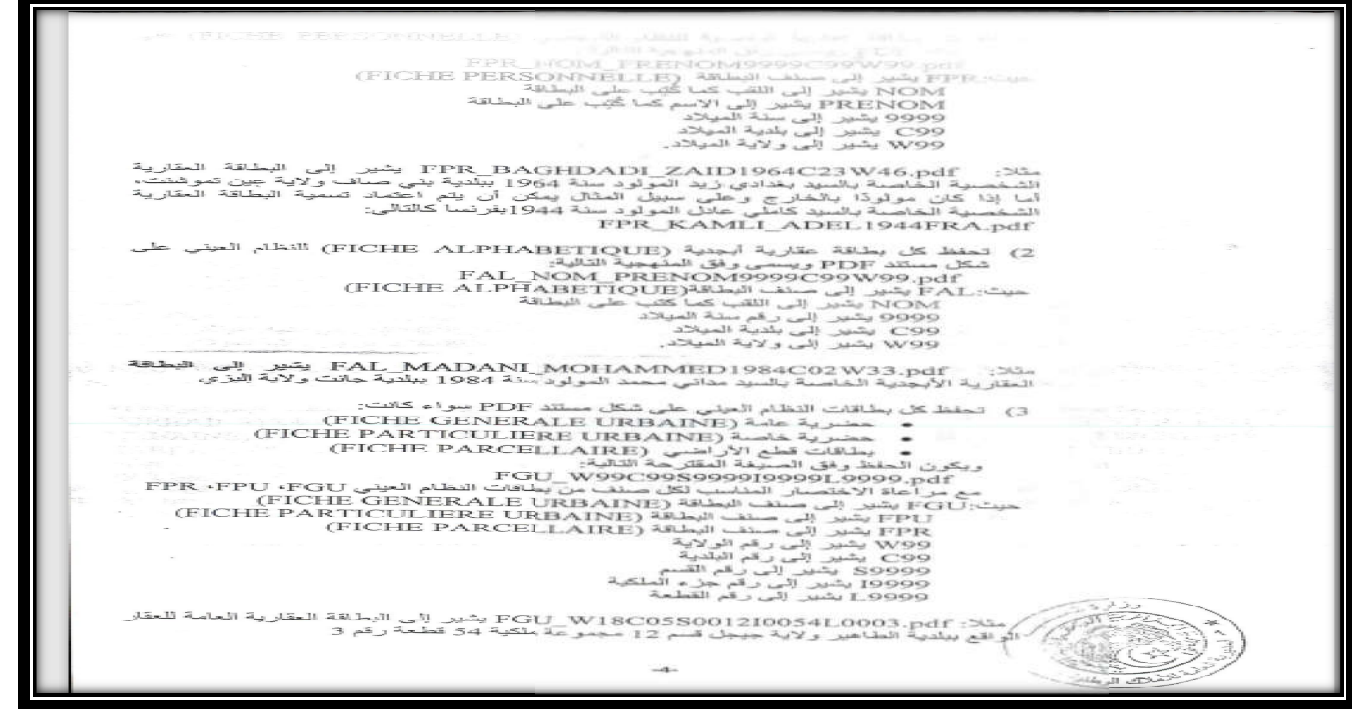 (FICHE PERSONNELLE)
FPR_NOM_PRENOM9999C99W99.pdf
حيث:FPR يشير إلى صنف البطاقة (FICHE PERSONNELLE)
NOM يشير إلى اللقب كما كُتِب على البطاقة
PRENOM يشير إلى الاسم كما كُتِب على البطاقة
9999 يشير إلى سنة الميلاد
C99 يشير إلى بلدية الميلاد
W99 يشير إلى ولاية الميلاد.
مثلا: FPR_BAGHDADI_ZAID1964C23W46.pdf يشير إلى البطاقة العقارية
الشخصية الخاصة بالسيد بغدادي زيد المولود سنة 1964 ببلدية بني صاف ولاية عين تموشنت،
أما إذا كان مولودًا بالخارج وعلى سبيل المثال يمكن أن يتم اعتماد تسمية البطاقة العقارية
الشخصية الخاصة بالسيد كاملي عادل المولود سنة 1944بفرنسا كالتالي:
FPR_KAMLI_ADEL1944FRA.pdf
2) تحفظ كل بطاقة عقارية أبجدية (FICHE ALPHABETIQUE) للنظام العيني على
شكل مستند PDF ويسمى وفق المنهجية التالية:
FAL_NOM_PRENOM9999C99W99.pdf
حيث:FAL يشير إلى صنف البطاقة(FICHE ALPHABETIQUE)
NOM يشير إلى اللقب كما كتب على البطاقة
9999 يشير إلى رقم سنة الميلاد
C99 يشير إلى بلدية الميلاد
W99 يشير إلى ولاية الميلاد.
مثلا: FAL_MADANI_MOHAMMED1984C02W33.pdf يشير إلى البطاقة
العقارية الأبجدية الخاصة بالسيد مداني محمد المولود سنة 1984 ببلدية جانت ولاية اليزي.
3) تحفظ كل بطاقات النظام العيني على شكل مستند PDF سواء كانت:
• حضرية عامة (FICHE GENERALE URBAINE)
• حضرية خاصة (FICHE PARTICULIERE URBAINE)
• بطاقات قطع الأراضي (FICHE PARCELLAIRE)
ويكون الحفظ وفق الصيغة المقترحة التالية:
FGU_W99C99S9999I9999L9999.pdf
مع مراعاة الاختصار المناسب لكل صنف من بطاقات النظام العيني FGU، FPU، FPR
حيث:FGU يشير إلى صنف البطاقة (FICHE GENERALE URBAINE)
FPU يشير إلى صنف البطاقة (FICHE PARTICULIERE URBAINE)
FPR يشير إلى صنف البطاقة (FICHE PARCELLAIRE)
W99 يشير إلى رقم الولاية
C99 يشير إلى رقم البلدية
S9999 يشير إلى رقم القسم
I9999 يشير إلى رقم جزء الملكية
L9999 يشير إلى رقم القطعة
مثلا: FGU_W18C05S0012I0054L0003.pdf يشير إلى البطاقة العقارية العامة للعقار
الواقع ببلدية الطاهير ولاية جيجل قسم 12 مجموعة ملكية 54 قطعة رقم 3
-4-